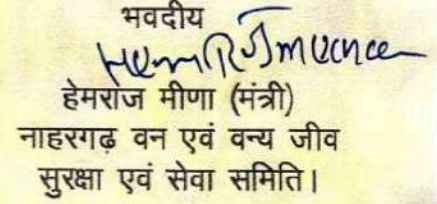 भवदीय
HemRajmeena
हेमराज मीणा (मंत्री)
नाहरगढ़ वन एवं वन्य जीव
सुरक्षा एवं सेवा समिति।